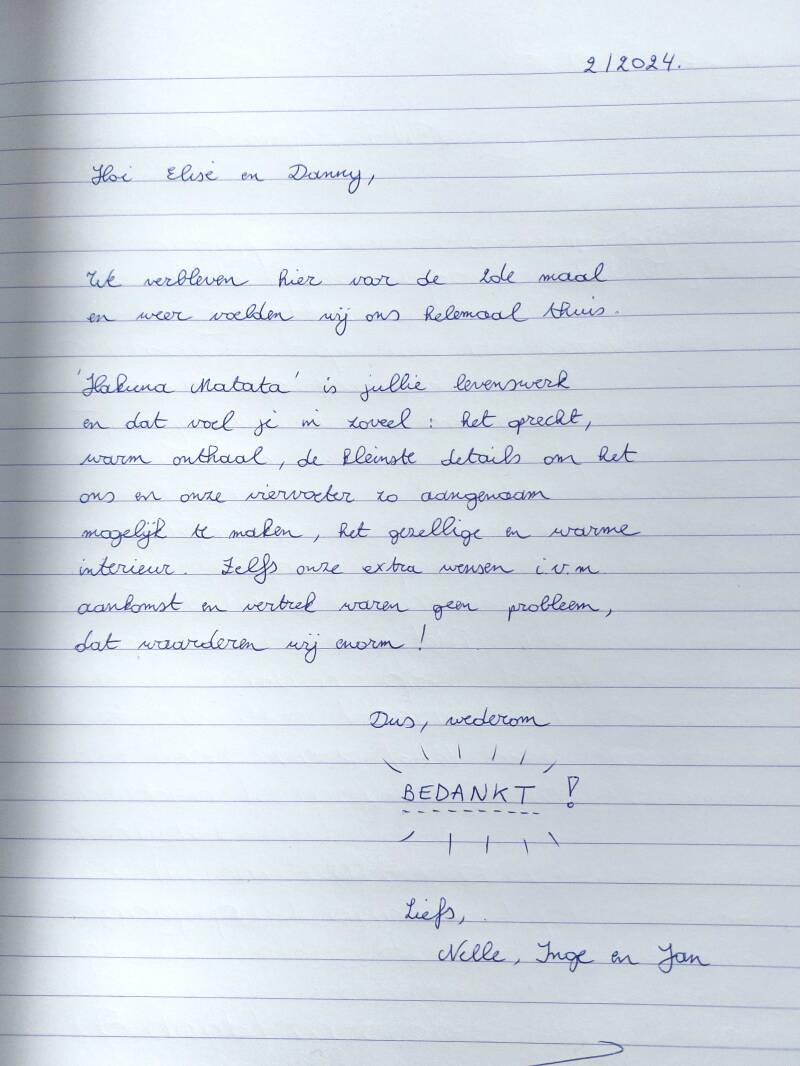 2/2024.
Hoi Elise en Danny,
We verbleven hier voor de 2de maal
en weer voelden wij ons helemaal thuis.
'Hakuna Matata' is jullie levenswerk
en dat voel je in zoveel : het oprecht,
warm onthaal, de kleinste details om het
ons en onze viervoeter zo aangenaam
mogelijk te maken, het gezellige en warme
interieur. Zelfs onze extra wensen i.v.m
aankomst en vertrek waren geen probleem,
dat waarderen wij enorm !
Dus, wederom
BEDANKT !
Liefs,
Nelle, Inge en Jan